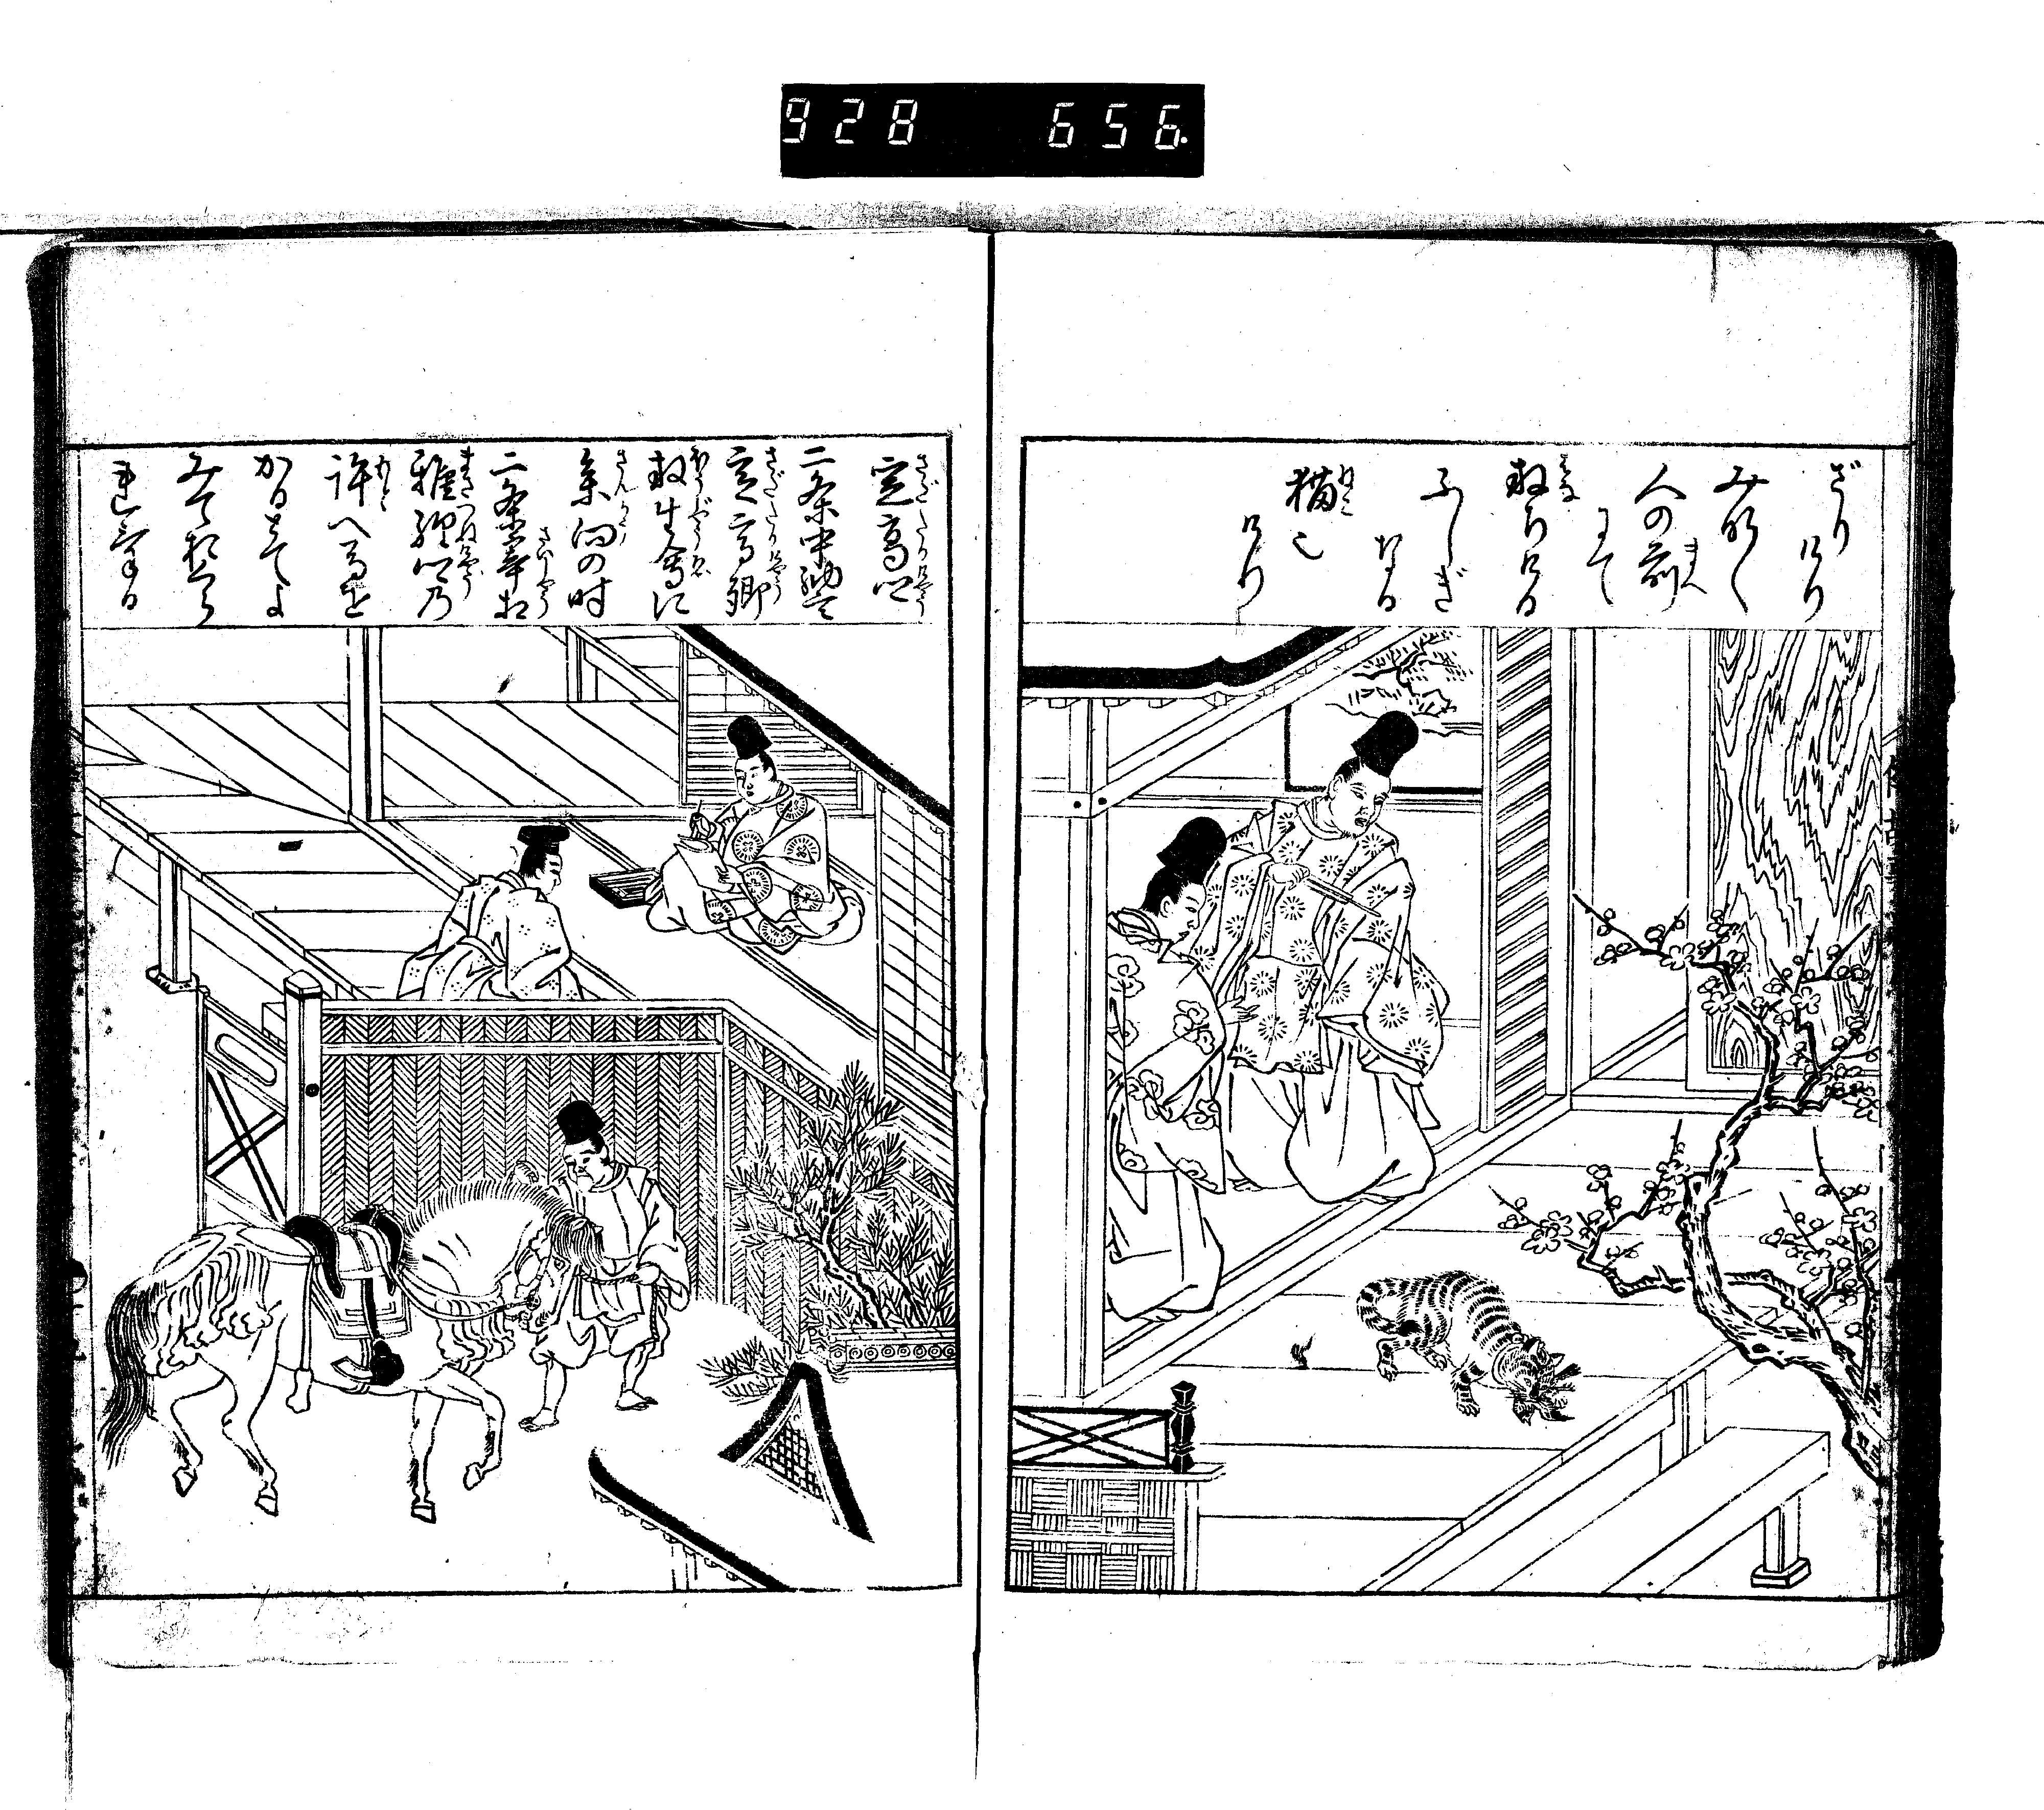 928 656
ざり
けり
みなく
人の前
にて
放ちける
ふしぎ
なる
猫也
けり
定高卿
二条中納言
定高卿
放生会に
参向の時
二条宰相
雅経卿乃
許へ馬を
かるとてよ
みておくら
れける